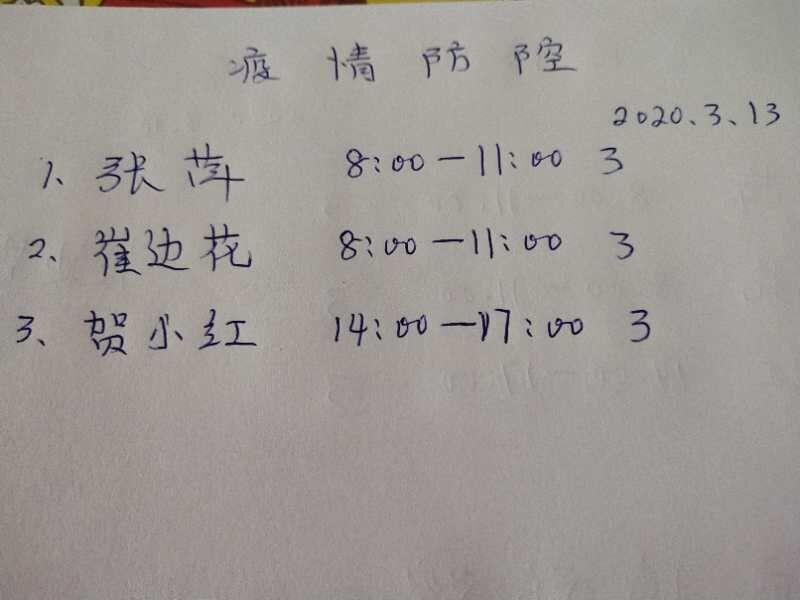 疫情防控
2020.3.13
1、张萍 8:00—11:00 3
2、崔边花 8:00—11:00 3
3、贺小红 14:00—17:00 3